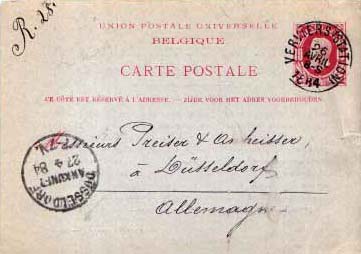 R. 28.
UNION POSTALE UNIVERSELLE
BELGIQUE
CARTE POSTALE
VERVIERS (STATION)
26
AVRIL
1884
CE CÔTÉ EST RÉSERVÉ À L'ADRESSE. — ZIJDE VOOR HET ADRES VOORBEHOUDEN.
Messieurs Preiser &
à Düsseldorf
Allemagne
DÜSSELDORF
27 4 84
ANKUNFT